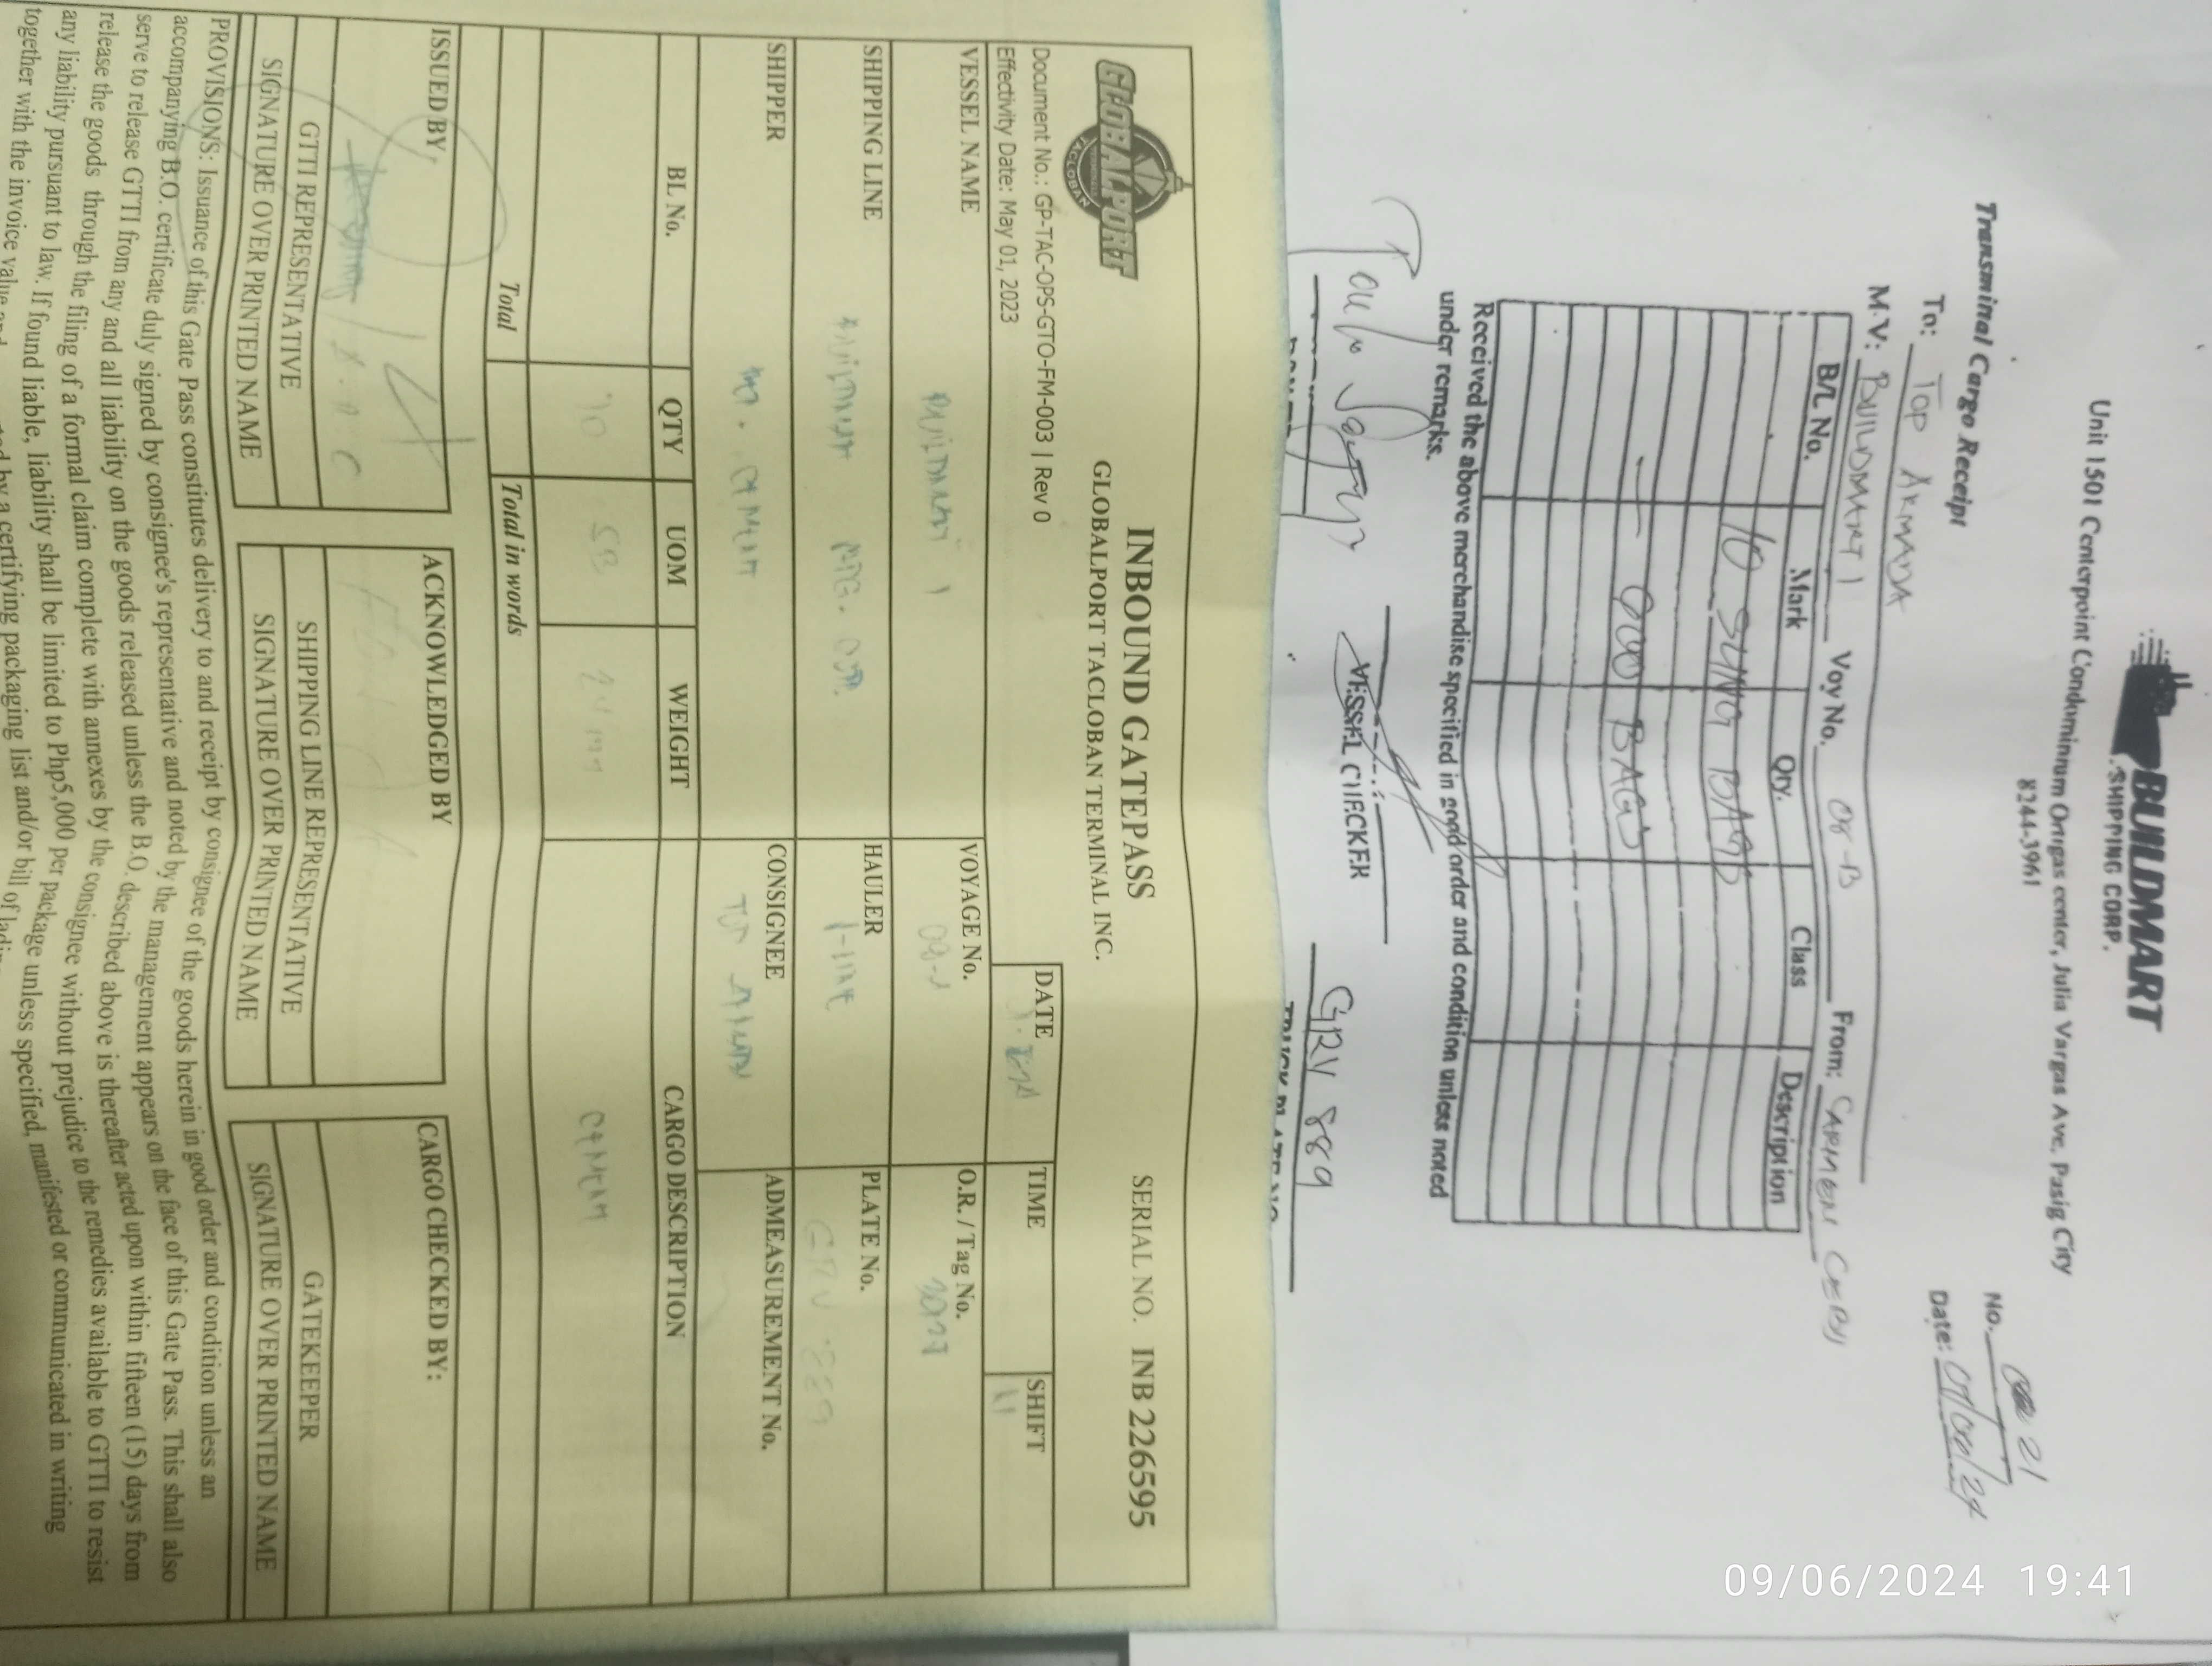 BUILDMART
SHIPPING CORP.
Unit 1501 Centerpoint Condominium Ortigas center, Julia Vargas Ave. Pasig City
8244-3961
Transminal Cargo Receipt
No. 21
Date:
To: TOP ARMADA
M.V: BUILDMART 1 Voy No. 08-B From: CARMEN CEBU
B/L No. Mark Qty. Class Description
10 SLING BAGS
BAGS
Received the above merchandise specified in good order and condition unless noted
under remarks.
VESSEL CHECKER
GRV 889
TRUCK PLATE NO
GLOBALPORT
TACLOBAN
INBOUND GATEPASS
GLOBALPORT TACLOBAN TERMINAL INC.
SERIAL NO. INB 226595
Document No.: GP-TAC-OPS-GTO-FM-003 | Rev 0
Effectivity Date: May 01, 2023
DATE TIME SHIFT
VESSEL NAME VOYAGE No. O.R. / Tag No.
SHIPPING LINE HAULER PLATE No.
SHIPPER CONSIGNEE ADMEASUREMENT No.
BL No. QTY UOM WEIGHT CARGO DESCRIPTION
10 SB CEMENT
Total Total in words
ISSUED BY, ACKNOWLEDGED BY CARGO CHECKED BY:
GTTI REPRESENTATIVE SHIPPING LINE REPRESENTATIVE GATEKEEPER
SIGNATURE OVER PRINTED NAME SIGNATURE OVER PRINTED NAME SIGNATURE OVER PRINTED NAME
PROVISIONS: Issuance of this Gate Pass constitutes delivery to and receipt by consignee of the goods herein in good order and condition unless an
accompanying B.O. certificate duly signed by consignee's representative and noted by the management appears on the face of this Gate Pass. This shall also
serve to release GTTI from any and all liability on the goods released unless the B.O. described above is thereafter acted upon within fifteen (15) days from
release the goods through the filing of a formal claim complete with annexes by the consignee without prejudice to the remedies available to GTTI to resist
any liability pursuant to law. If found liable, liability shall be limited to Php5,000 per package unless specified, manifested or communicated in writing
together with the invoice value and by a certifying packaging list and/or bill of
09/06/2024 19:41